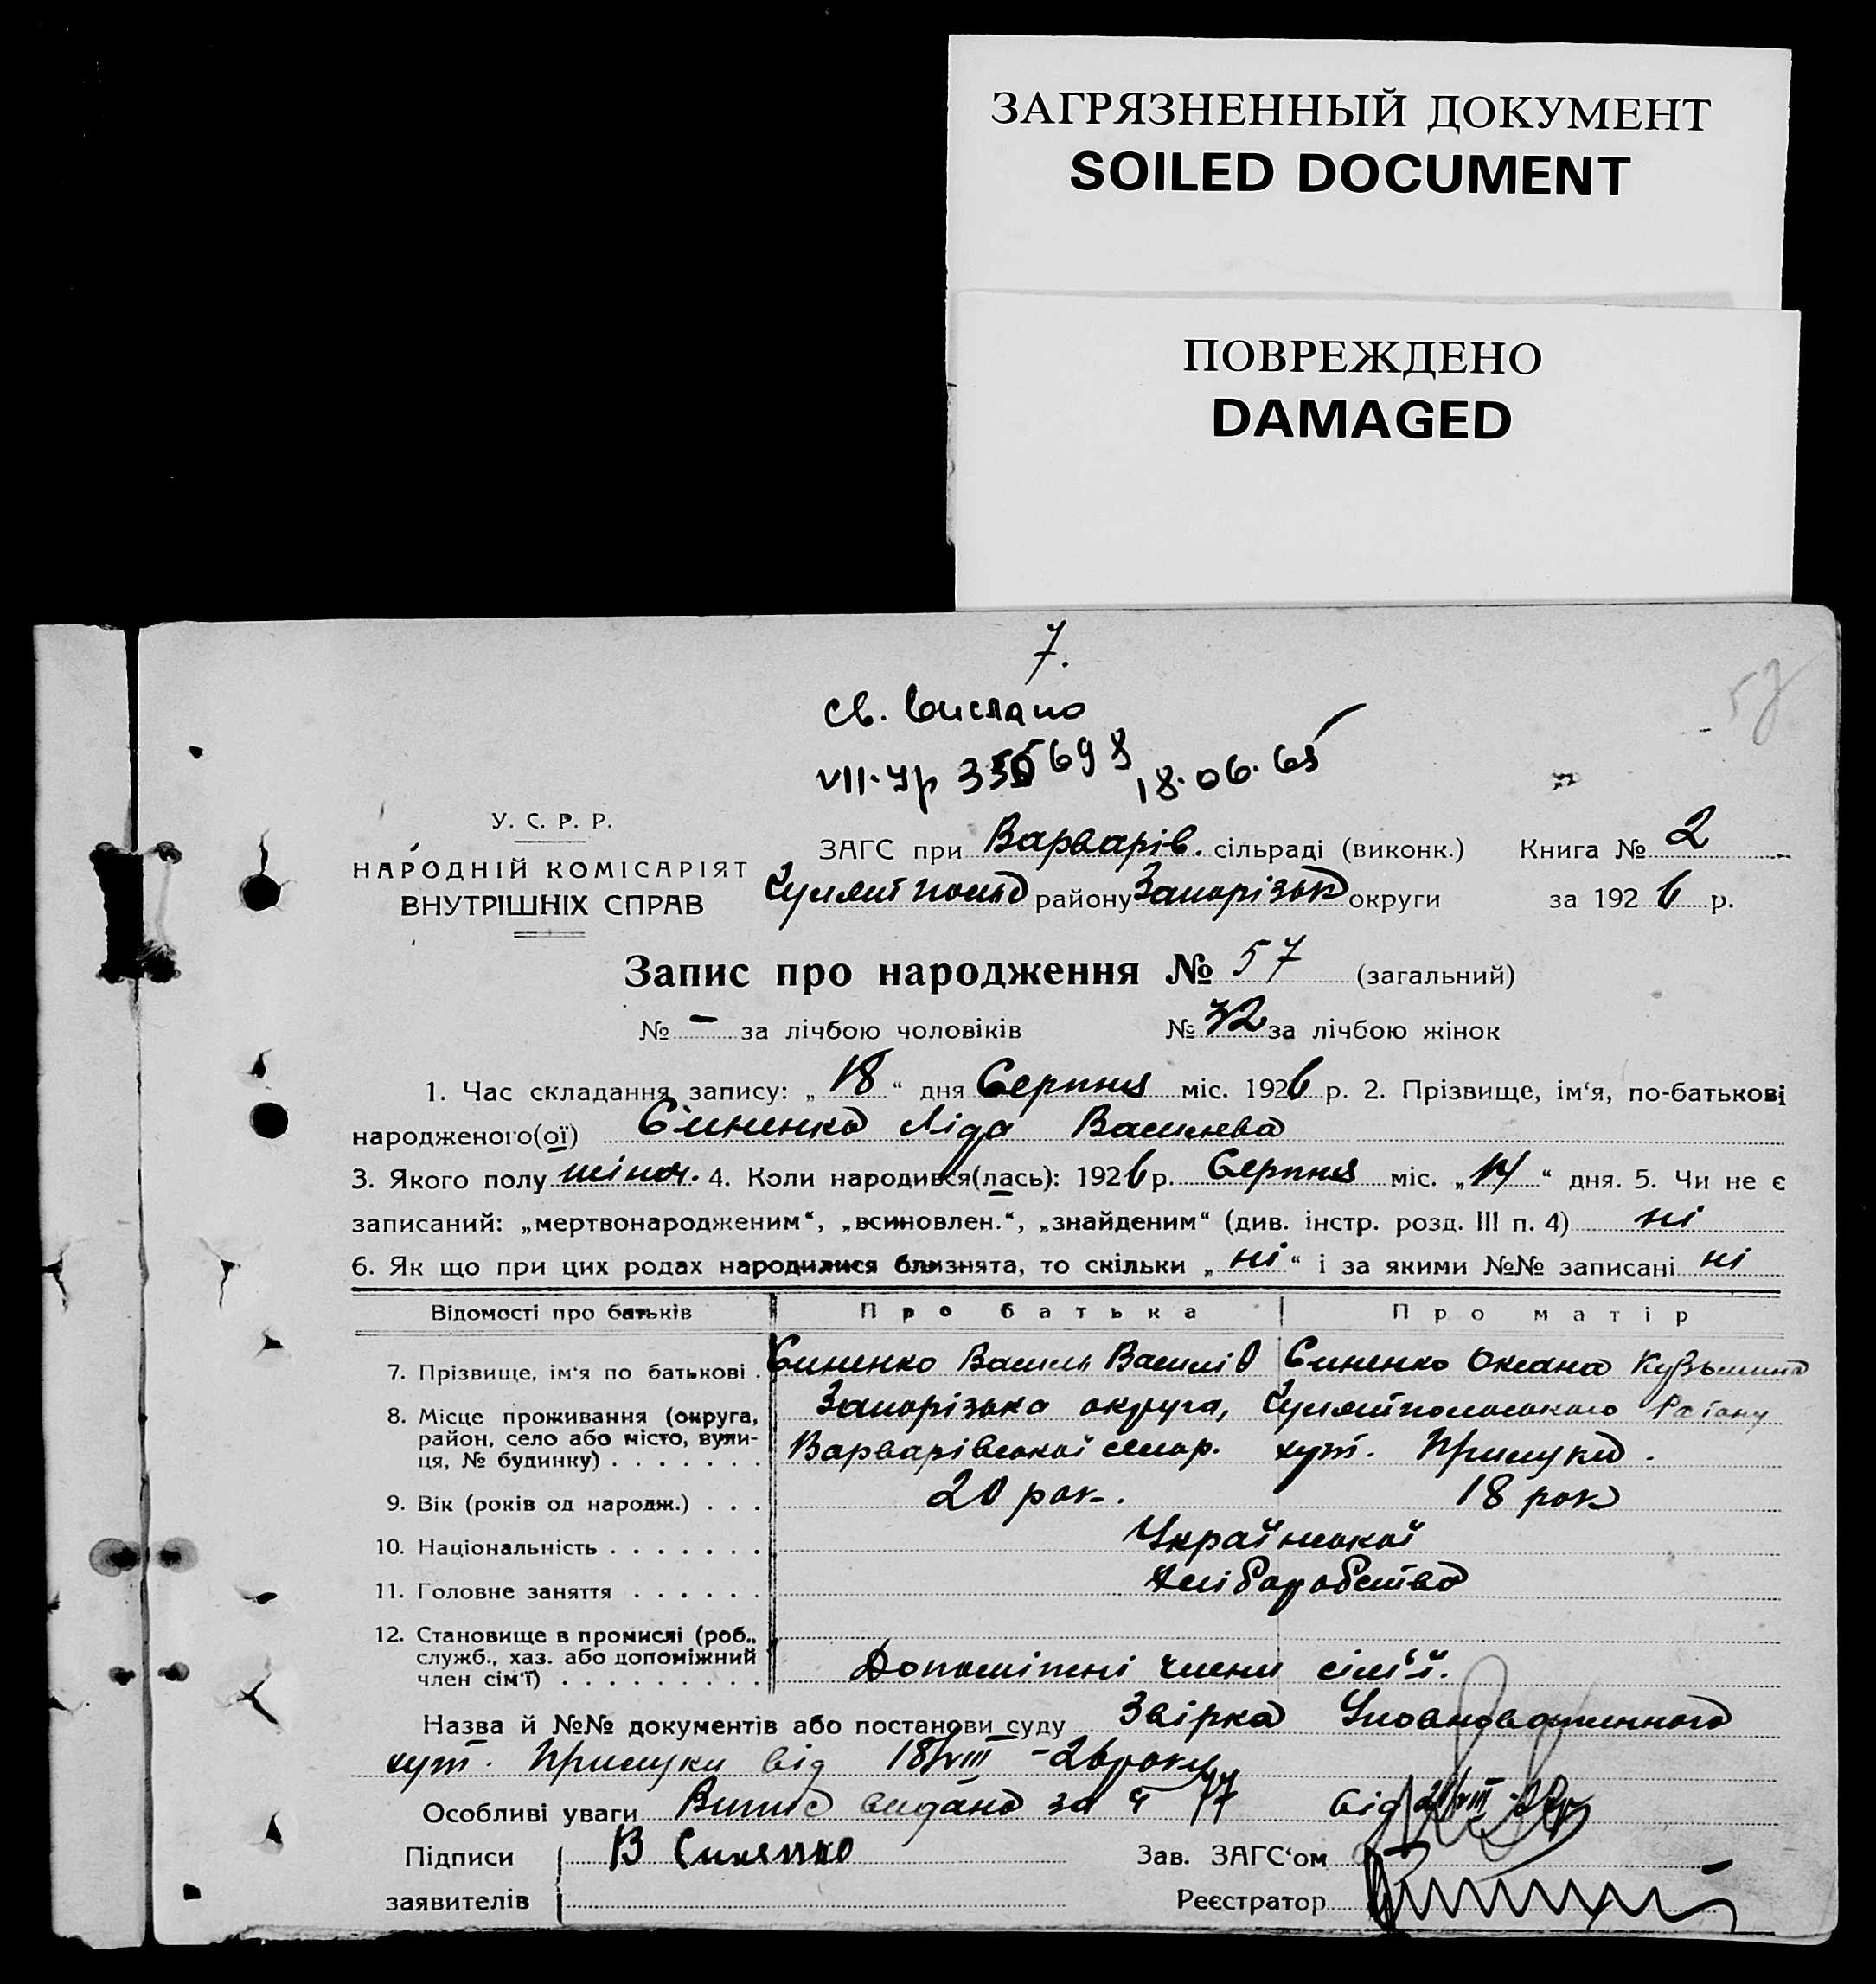 ЗАГРЯЗНЕННЫЙ ДОКУМЕНТ
SOILED DOCUMENT
ПОВРЕЖДЕНО
DAMAGED
7.
57
св. вислано
VII-УР 18.06.65
У. С. Р. Р.
НАРОДНІЙ КОМІСАРІЯТ
ВНУТРІШНІХ СПРАВ
ЗАГС при Варварів. сільраді (виконк.) Книга № 2
району Запорізьк округи за 1926 р.
Запис про народження № 57 (загальний)
№ – за лічбою чоловіків № 32 за лічбою жінок
1. Час складання запису: „18“ дня Серпня міс. 1926 р. 2. Прізвище, ім‘я, по-батькові
народженого(ої) Синенко Ліда Василева
3. Якого полу жіноч. 4. Коли народився(лась): 1926 р. Серпня міс. „14“ дня. 5. Чи не є
записаний: „мертвонародженим“, „всиновлен.“, „знайденим“ (див. інстр. розд. III п. 4) ні
6. Як що при цих родах народилися близнята, то скільки „ні“ і за якими №№ записані ні
Відомості про батьків Про батька Про матір
7. Прізвище, ім‘я по батькові . Синенко Василь Василів Синенко Оксана Кузьмина
8. Місце проживання (округа, район, село або місто, вулиця, № будинку) . . . . . . . Запорізька округа, Гуляйпольського Району
Варварівської сільр. хут. Прилуки.
9. Вік (років од народж.) . . . 20 рок. 18 рок
10. Національність . . . . . . . Української
11. Головне заняття . . . . . . Хліборобство
12. Становище в промислі (роб., служб., хаз. або допоміжний член сім‘ї) . . . . . . . . . Допоміжні члени сім‘ї.
Назва й №№ документів або постанови суду Звірка Уповноваженного
хут. Прилуки від 18/VIII – 26 року
Особливі уваги Випис видано за № 77 від
Підписи В Синенко Зав. ЗАГС‘ом
заявителів Реєстратор